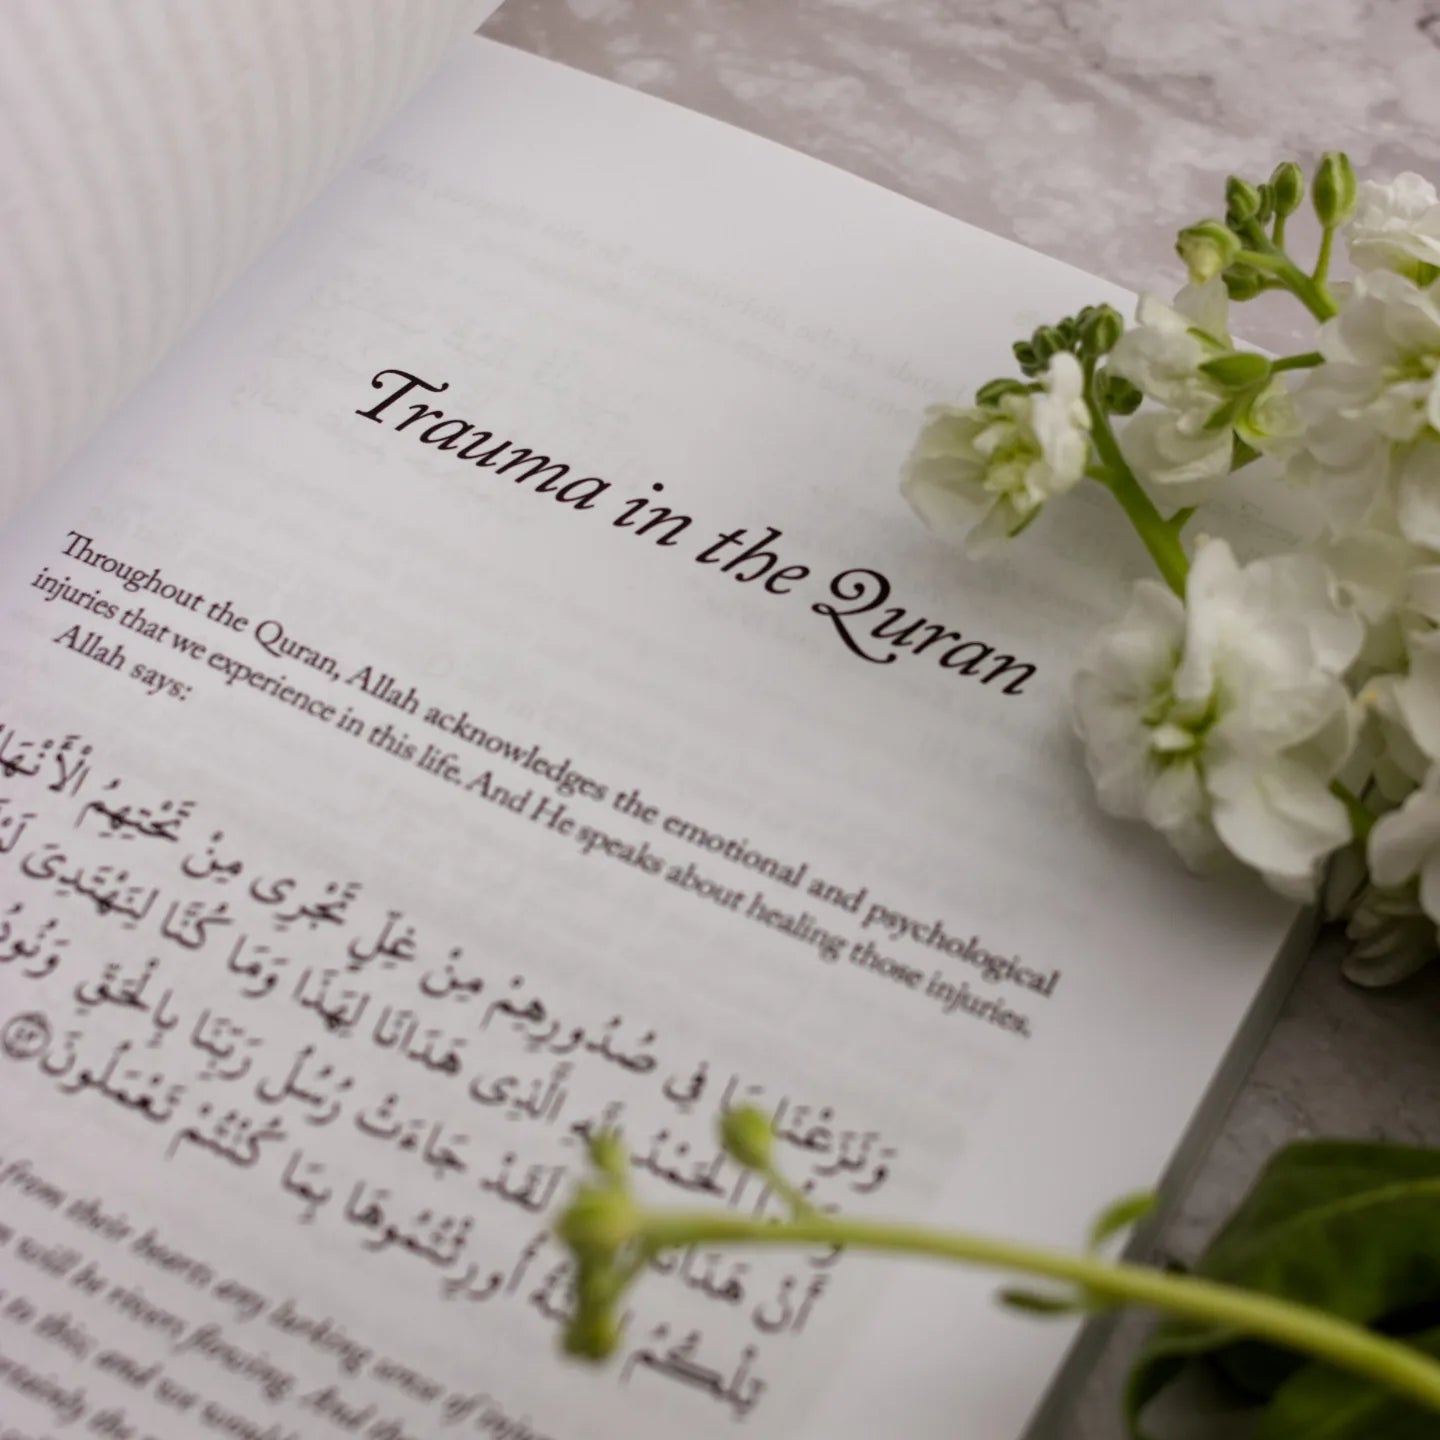 Trauma in the Quran
Throughout the Quran, Allah acknowledges the emotional and psychological
injuries that we experience in this life. And He speaks about healing those injuries.
Allah says:
وَنَزَعْنَا مَا فِى صُدُورِهِمْ مِنْ غِلٍّ تَجْرِى مِنْ تَحْتِهِمُ الْأَنْهَا
الْحَمْدُ لِلَّهِ الَّذِى هَدَانَا لِهَذَا وَمَا كُنَّا لِنَهْتَدِىَ
أَنْ هَدَانَا لَقَدْ جَاءَتْ رُسُلُ رَبِّنَا بِالْحَقِّ
تِلْكُمُ أُورِثْتُمُوهَا بِمَا كُنْتُمْ تَعْمَلُونَ ٤٣
from their hearts any lurking sense of
will be rivers flowing. And
to this, and we
the